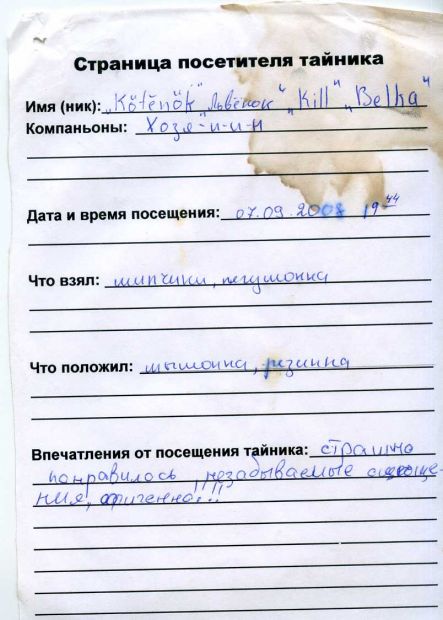 Страница посетителя тайника
Имя (ник): „Kötёnök" Львёнок" „Kill" „Belka"
Компаньоны: Хозя-и-и-н
Дата и время посещения: 07.09.2008 19 44
Что взял: мипчики,
Что положил: мышонка, резинка
Впечатления от посещения тайника: страшно
понравилось, незабываемые ощуще-
ния, офигенно!!!